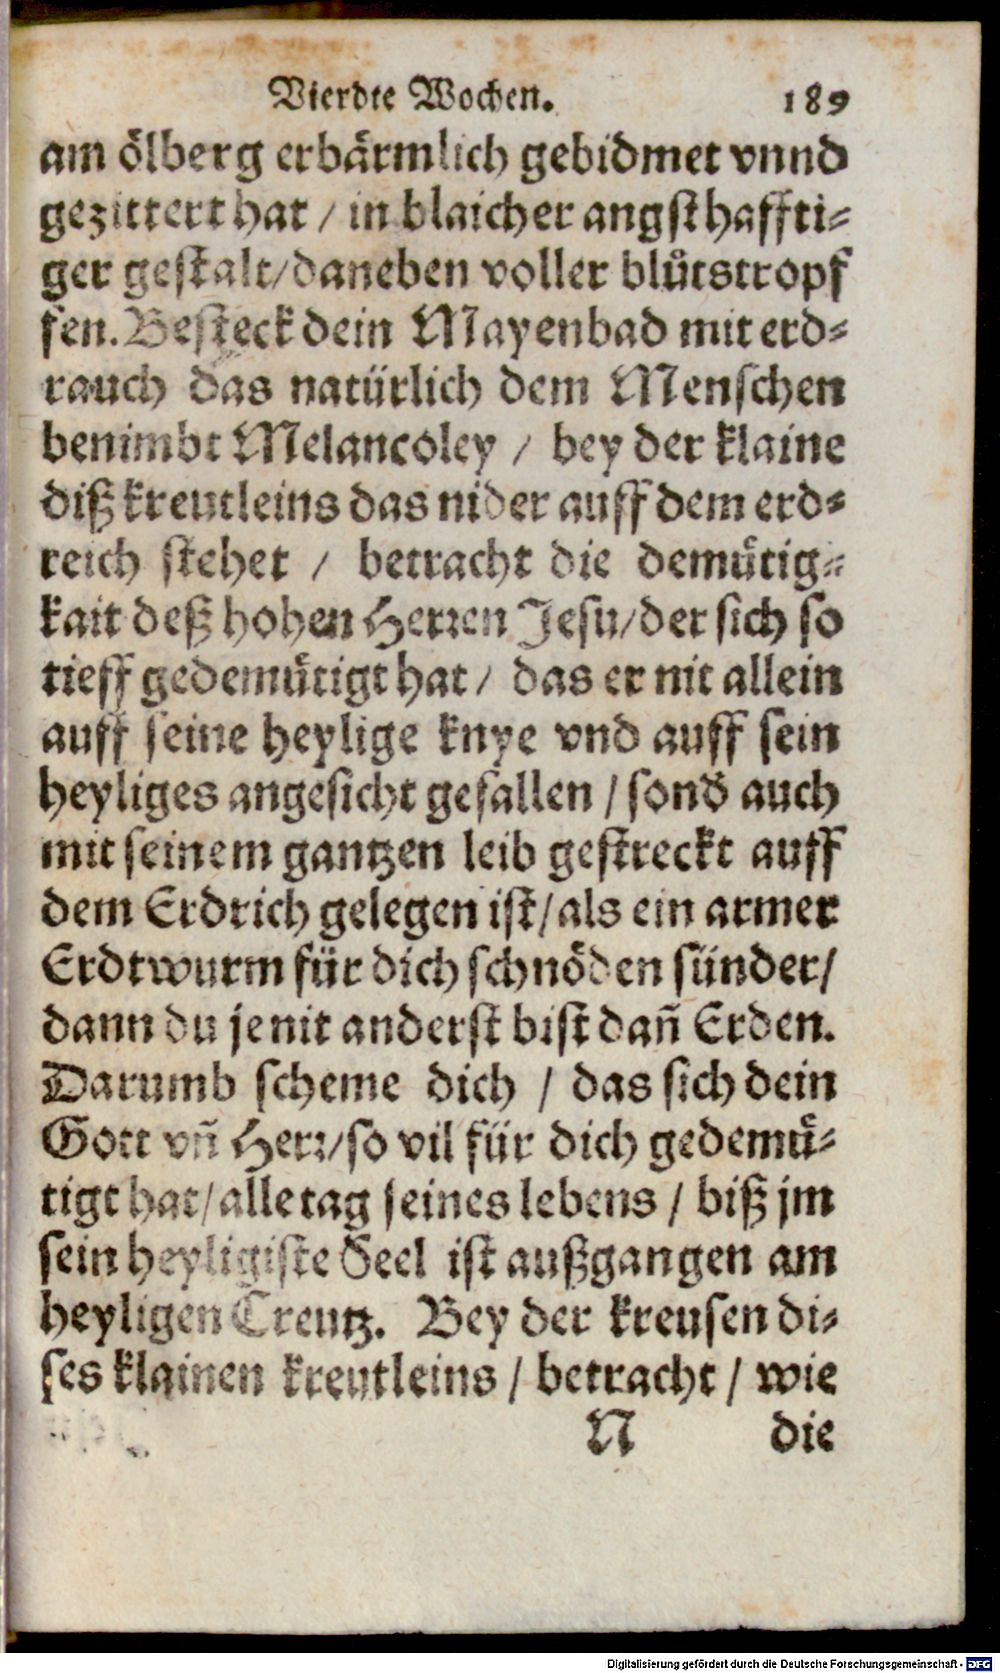 Vierdte Wochen. 189
am ölberg erbärmlich gebidmet vnnd
gezittert hat / in blaicher angsthaffti⸗
ger gestalt/daneben voller blůtstropf
fen. Besteck dein Mayenbad mit erd⸗
rauch das natürlich dem Menschen
benimbt Melancoley / bey der klaine
diß kreutleins das nider auff dem erd⸗
reich stehet / betracht die demütig⸗
kait deß hohen Herren Jesu/der sich so
tieff gedemütigt hat / das er nit allein
auff seine heylige knye vnd auff sein
heyliges angesicht gefallen / sond̄ auch
mit seinem gantzen leib gestreckt auff
dem Erdrich gelegen ist/als ein armer
Erdtwurm für dich schnöden sünder/
dann du je nit anderst bist dañ Erden.
Darumb scheme dich / das sich dein
Gott vñ Herr/so vil für dich gedemü⸗
tigt hat/alle tag seines lebens / biß jm
sein heyligiste Seel ist außgangen am
heyligen Creutz. Bey der kreusen di⸗
ses klainen kreutleins / betracht / wie
N die
Digitalisierung gefördert durch die Deutsche Forschungsgemeinschaft - DFG